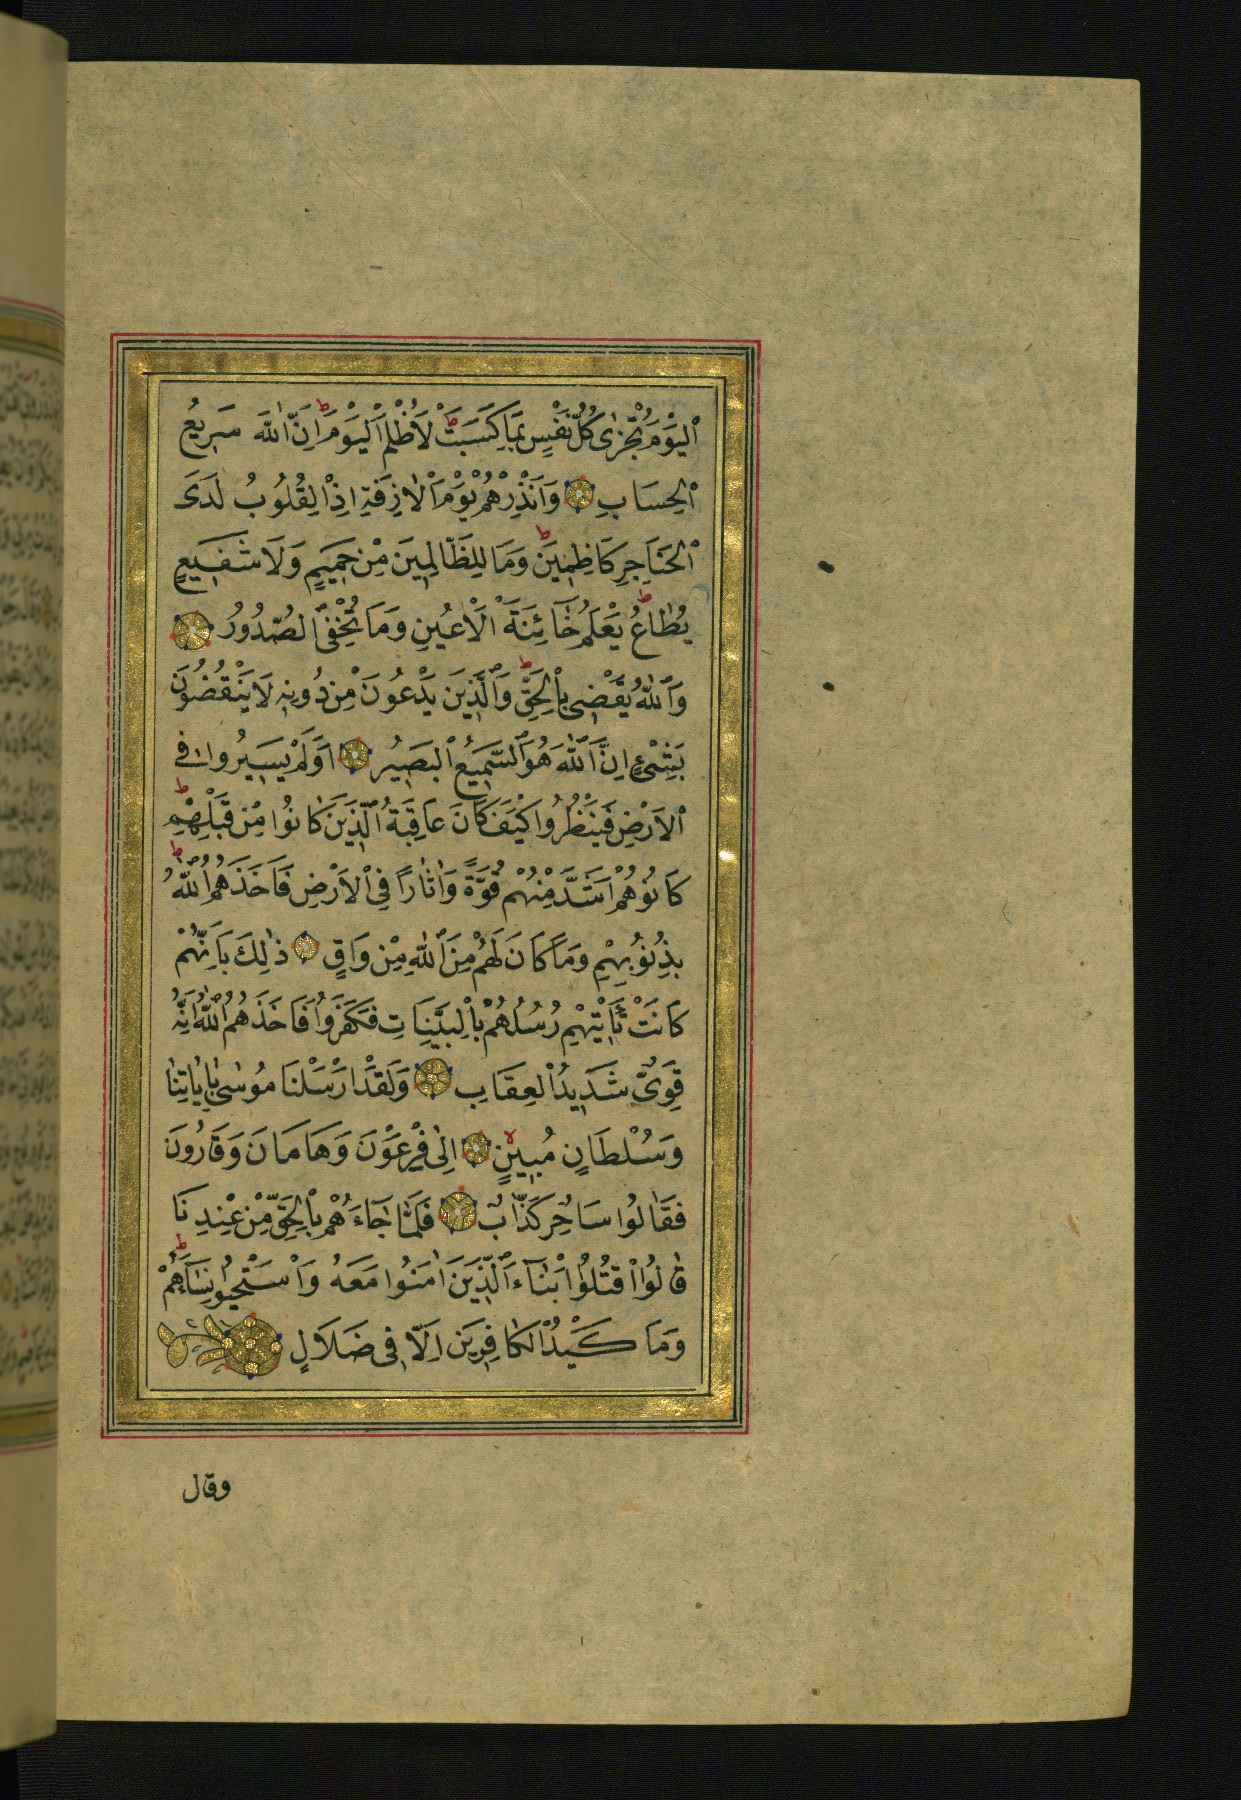 اَلْيَوْمَ تُجْزٰى كُلُّ نَفْسٍ بِمَا كَسَبَتْ ط لَا ظُلْمَ الْيَوْمَ ط اِنَّ اللّٰهَ سَرِيعُ
الْحِسَابِ وَاَنْذِرْهُمْ يَوْمَ الْاٰزِفَةِ اِذِ الْقُلُوبُ لَدَى
الْحَنَاجِرِ كَاظِمِينَ ط وَمَا لِلظَّالِمِينَ مِنْ حَمِيمٍ وَلَا شَفِيعٍ
يُطَاعُ ط يَعْلَمُ خَائِنَةَ الْاَعْيُنِ وَمَا تُخْفِى الصُّدُورُ
وَاللّٰهُ يَقْضِى بِالْحَقِّ ط وَالَّذِينَ يَدْعُونَ مِنْ دُونِهِ لَا يَقْضُونَ
بِشَىْءٍ اِنَّ اللّٰهَ هُوَ السَّمِيعُ الْبَصِيرُ اَوَلَمْ يَسِيرُوا فِى
الْاَرْضِ فَيَنْظُرُوا كَيْفَ كَانَ عَاقِبَةُ الَّذِينَ كَانُوا مِنْ قَبْلِهِمْ ط
كَانُوا هُمْ اَشَدَّ مِنْهُمْ قُوَّةً وَاٰثَارًا فِى الْاَرْضِ فَاَخَذَهُمُ اللّٰهُ ط
بِذُنُوبِهِمْ وَمَا كَانَ لَهُمْ مِنَ اللّٰهِ مِنْ وَاقٍ ذٰلِكَ بِاَنَّهُمْ
كَانَتْ تَاْتِيهِمْ رُسُلُهُمْ بِالْبَيِّنَاتِ فَكَفَرُوا فَاَخَذَهُمُ اللّٰهُ اِنَّهُ
قَوِىٌّ شَدِيدُ الْعِقَابِ وَلَقَدْ اَرْسَلْنَا مُوسٰى بِاٰيَاتِنَا
وَسُلْطَانٍ مُبِينٍ لا اِلٰى فِرْعَوْنَ وَهَامَانَ وَقَارُونَ
فَقَالُوا سَاحِرٌ كَذَّابٌ فَلَمَّا جَاءَهُمْ بِالْحَقِّ مِنْ عِنْدِنَا
قَالُوا اقْتُلُوا اَبْنَاءَ الَّذِينَ اٰمَنُوا مَعَهُ وَاسْتَحْيُوا نِسَاءَهُمْ ط
وَمَا كَيْدُ الْكَافِرِينَ اِلَّا فِى ضَلَالٍ
وقال